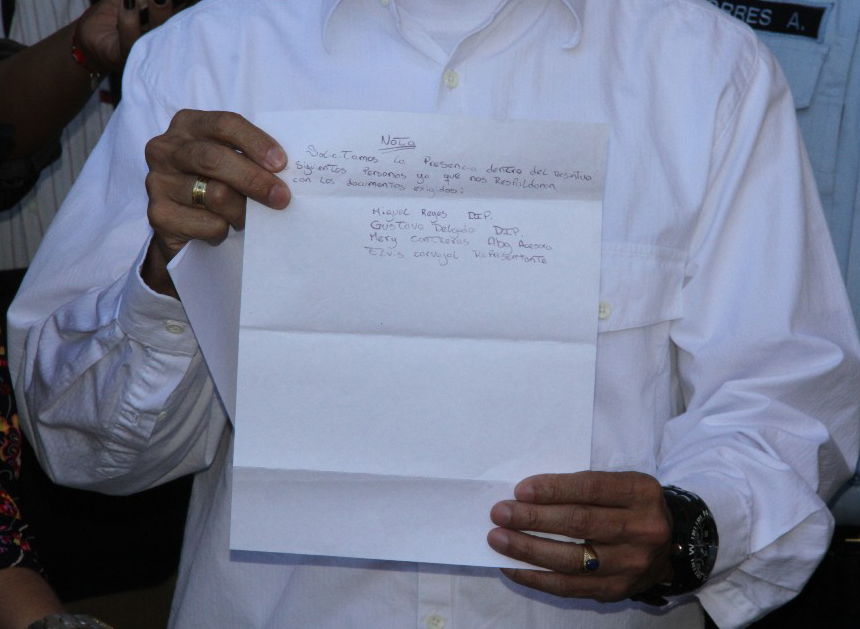 Nota
Solicitamos la Presencia dentro del
Siguientes Personas ya que nos Respaldaran
con los documentos exigidos:
Miguel Reyes DIP.
Gustavo Delgado DIP.
Mery Contreras Abg Asesora
Elvis carvajal Representante
ORRES A.